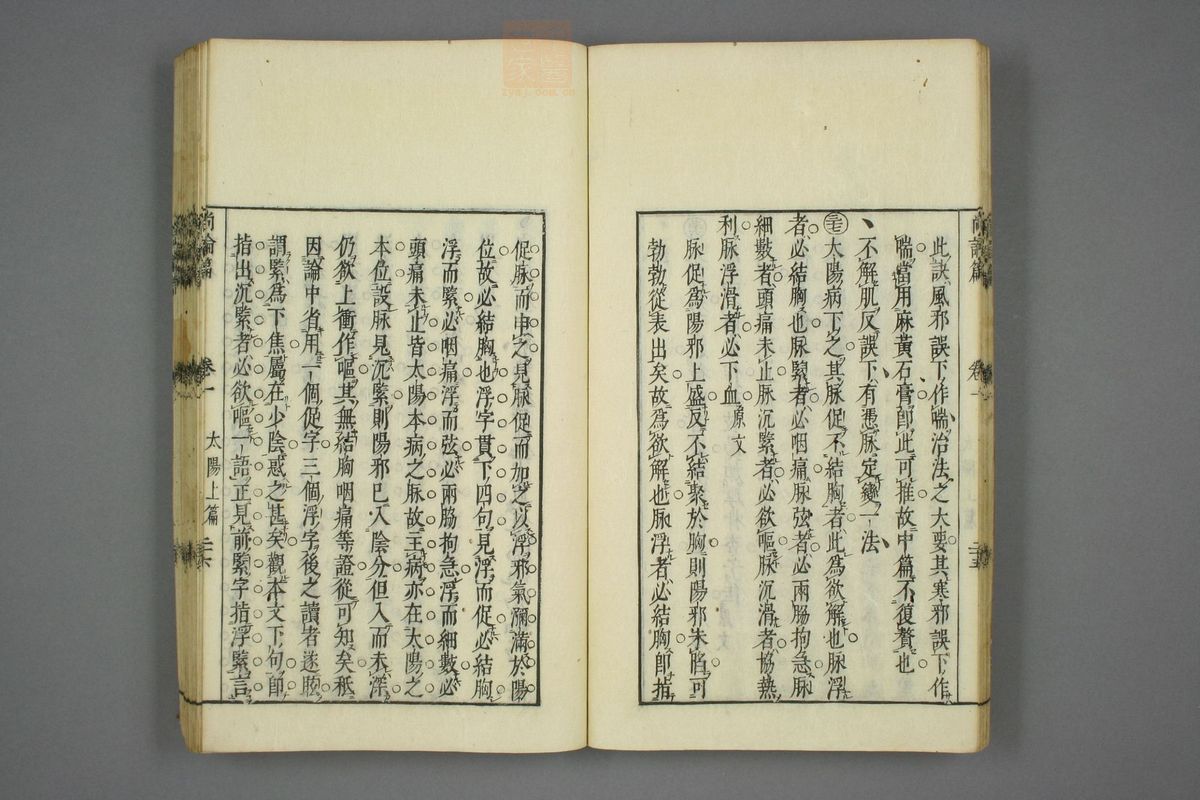 此訣風邪誤下作喘治法之大要其寒邪誤下作
喘當用麻黃石膏即此可推故中篇不復贅也
不解肌反誤下有憑脉定變一法
太陽病下之其脉促不結胸者此爲欲解也脉浮
者必結胸也脉緊者必咽痛脉弦者必兩脇拘急脉
細數者頭痛未止脉沉緊者必欲嘔脉沉滑者協熱
利脉浮滑者必下血原文
脉促爲陽邪上盛反不結聚於胸則陽邪未陷可
勃勃從表出矣故爲欲解也脉浮者必結胸即指
尚論篇
卷一
太陽上篇
二十六
促脉而申之見脉促而加之以浮邪氣瀰滿於陽
位故必結胸也浮字貫下四句見浮而促必結胸
浮而緊必咽痛浮而弦必兩脇拘急浮而細數必
頭痛未止皆太陽本病之脉故主病亦在太陽之
本位設脉見沉緊則陽邪已入陰分但入而未深
仍欲上衝作嘔其無結胸咽痛等證從可知矣秪
因論中省用一個促字三個浮字後之讀者遂眩
謂緊爲下焦屬在少陰惑之甚矣觀本文下句即
指出沉緊者必欲嘔一語正見前緊字指浮緊言
尚論篇
卷一